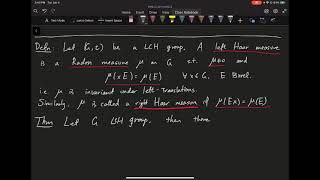 Defn: Let (G,τ) be a LCH group. A left Haar measure
is a Radon measure μ on G s.t. μ≠0 and
μ(xE) = μ(E) ∀ x∈G, E Borel.
i.e. μ is invariant under left-translations.
Similarly, μ is called a right Haar measure if μ(Ex)=μ(E).
Thm Let G LCH group, then there